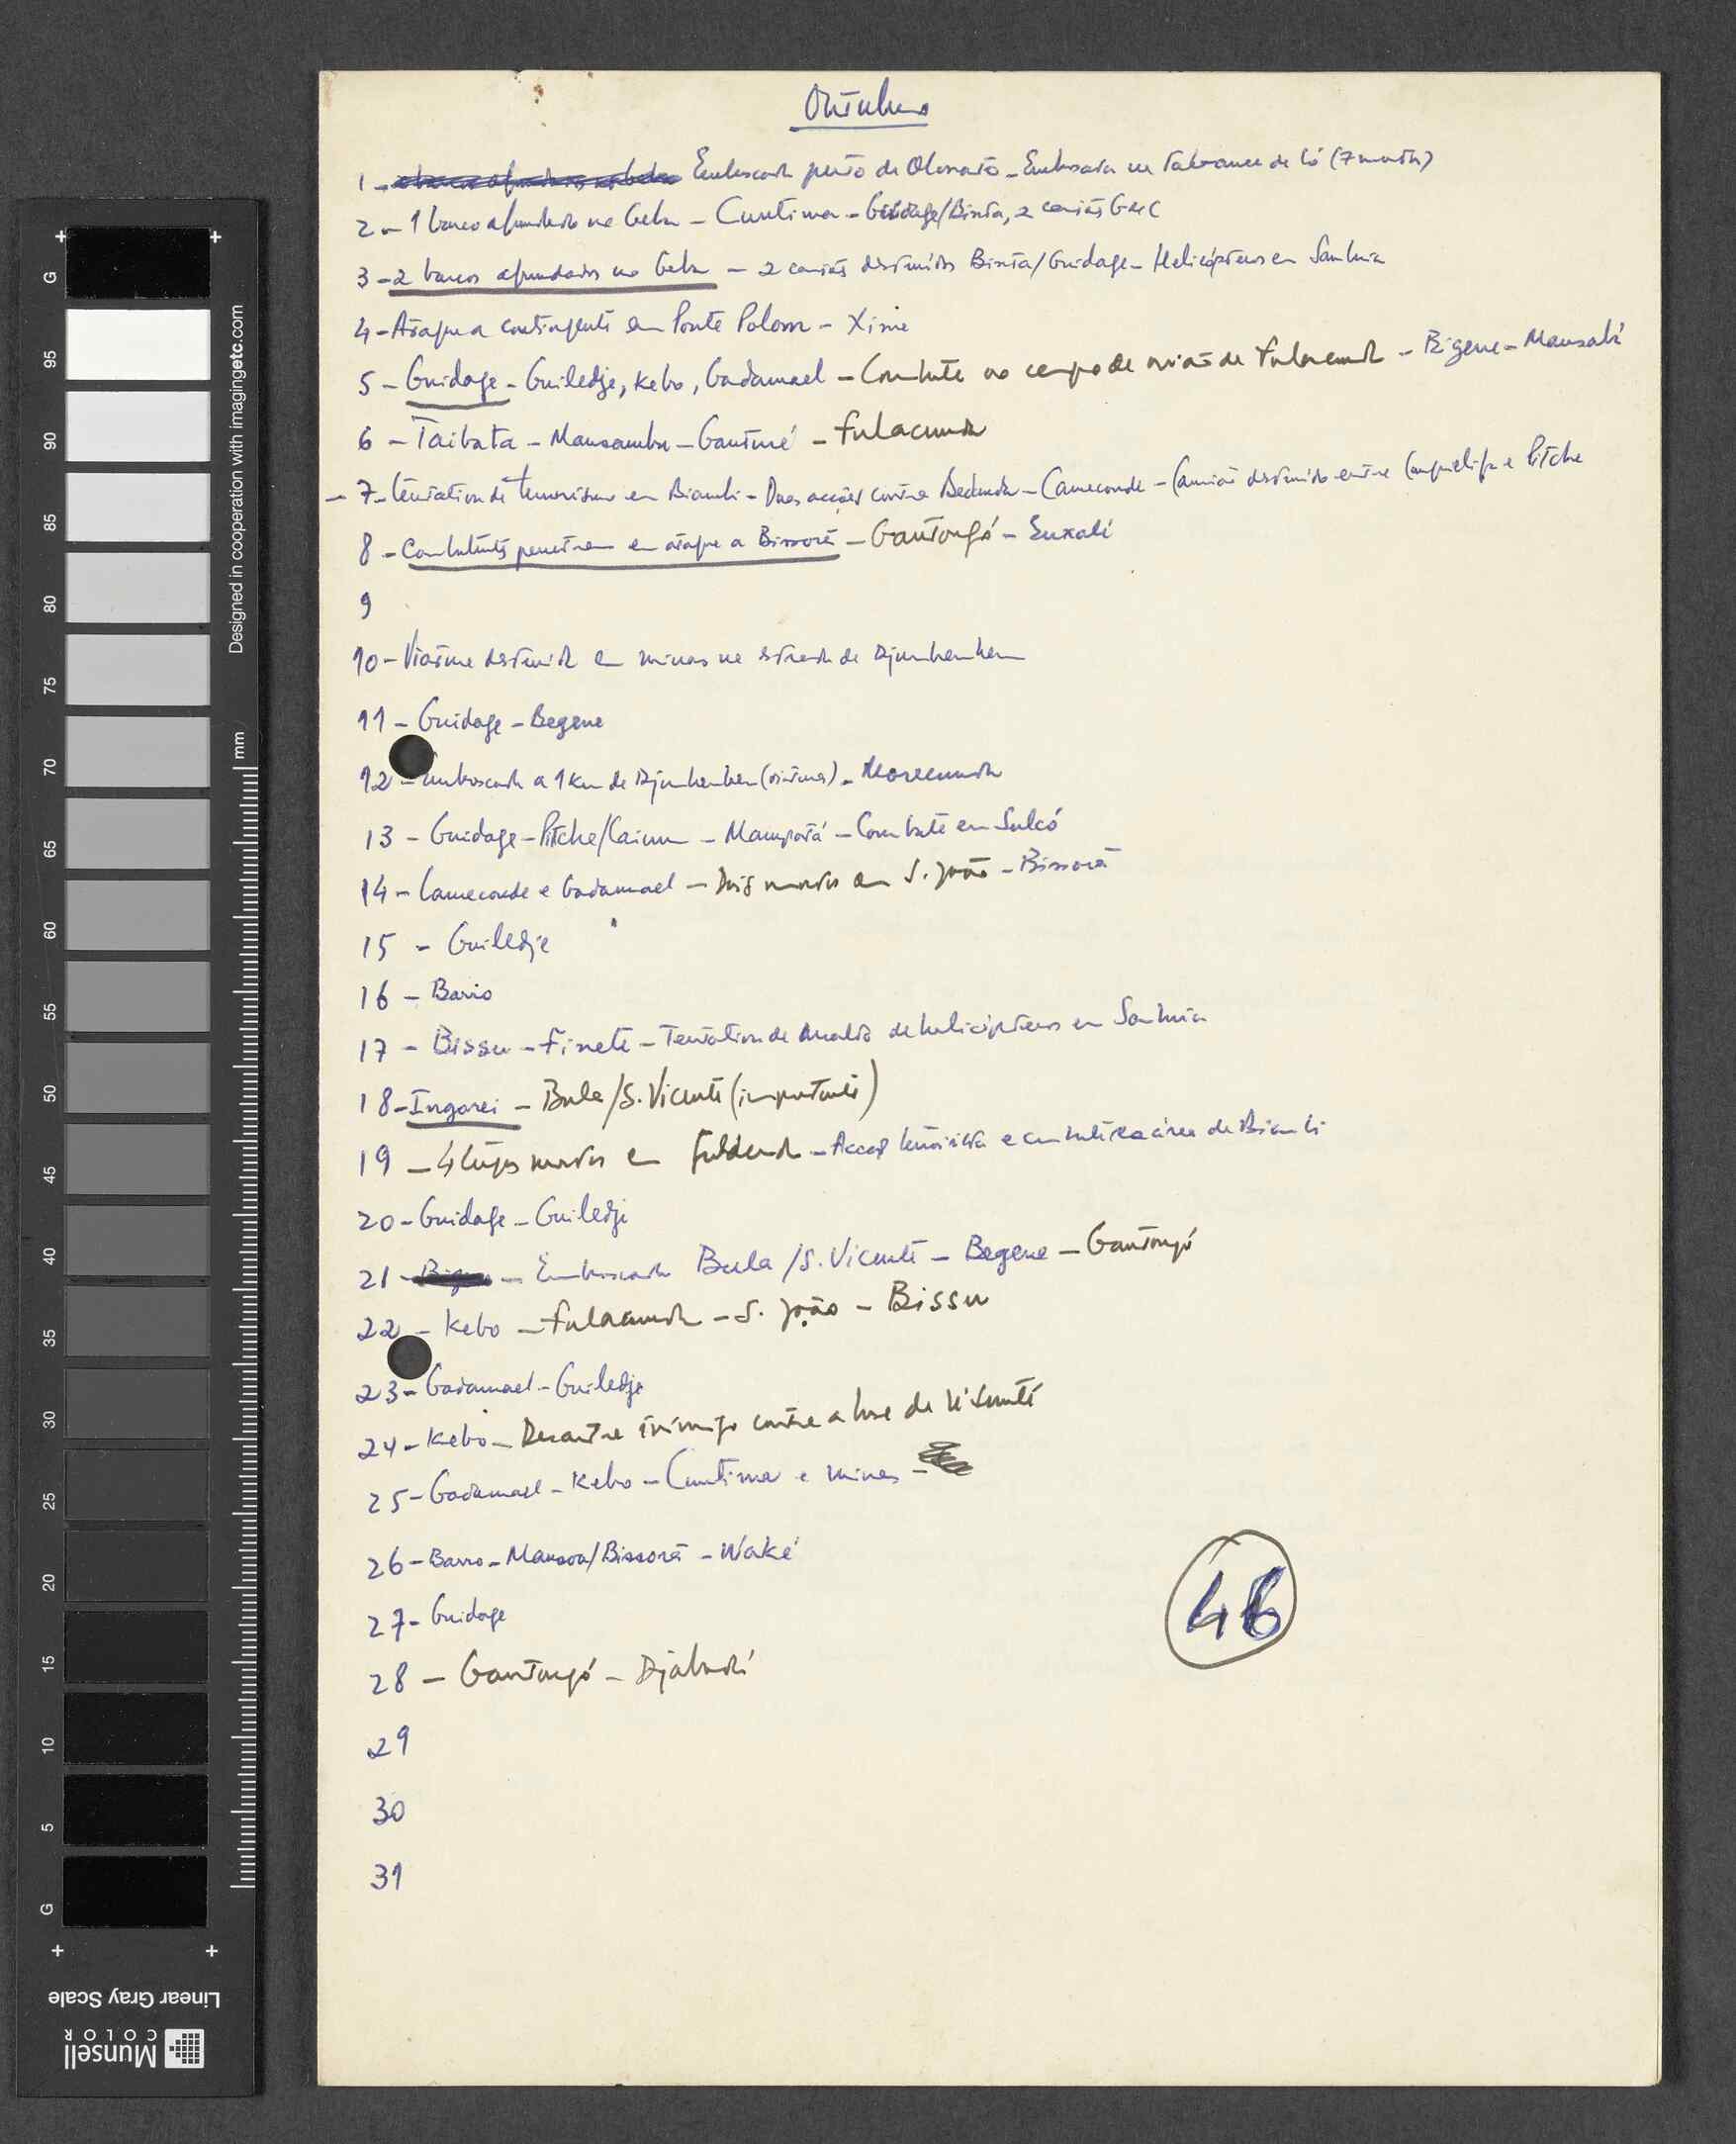 Outubro
1 - Emboscada perto de Olossato - Emboscada na Tabanca de Có (7 mortos)
2 - 1 barco afundado no Geba - Cuntima - Guidage/Binta, 2 camiões GMC
3 - 2 barcos afundados no Geba - 2 camiões destruídos Binta/Guidage - Helicópteros em Sambuia
4 - Ataque a contingente em Ponte Polom - Xime
5 - Guidage - Guiledje, Kebo, Gadamael - Combate no campo de aviação de Fulacunda - Bigene - Mansabá
6 - Taibata - Mansamba - Ganturé - Fulacunda
- 7 - tentation de terrorismo em Biambi - Duas acções contra Bedanda - Cameconde - Camião destruído entre Canquelifa e Pitche
8 - Combatentes penetram em ataque a Bissorã - Gantongó - Enxalé
9
10 - Viatura destruída em minas na estrada de Djumbembem
11 - Guidage - Begene
12 - Emboscada a 1 km de Djumbembem (viaturas) - Morecunda
13 - Guidage - Pitche/Caium - Mampatá - Combate em Salcó
14 - Cameconde e Gadamael - Dois mortos em S. João - Bissorã
15 - Guiledje
16 - Barro
17 - Bissu - Finete - Tentation de assalto de helicópteros em Sambuia
18 - Ingorei - Bula/S. Vicente (importante)
19 - 4 tugas mortos em Fulacunda - Acção terrorista e combate na área de Biambi
20 - Guidage - Guiledje
21 - Emboscada Bula/S. Vicente - Begene - Gantongó
22 - Kebo - Fulacunda - S. João - Bissu
23 - Gadamael - Guiledje
24 - Kebo - Desastre inimigo contra a base de
25 - Gadamael - Kebo - Cuntima e minas -
26 - Barro - Mansoa/Bissorã - Waké
27 - Guidage
28 - Gantongó - Djabadá
29
30
31
46
G
95
90
85
80
75
70
65
60
55
50
45
40
35
30
25
20
15
10
5
G
mm
Designed in cooperation with imagingetc.com
Linear Gray Scale
Munsell
COLOR